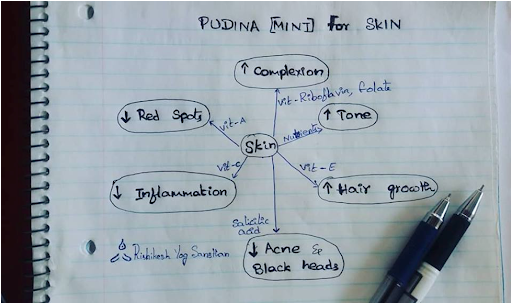 PUDINA [MINT] for SKIN
↑ Complexion
Vit-Riboflavin, folate
↓ Red Spots
Vit-A
↑ Tone
Nutrients
Skin
Vit-C
Vit-E
↓ Inflammation
↑ Hair growth
Salicilic
acid
↓ Acne &
Black heads
Rishikesh Yog Sansthan